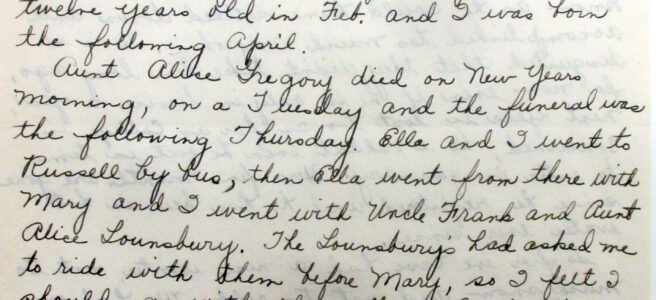 twelve years old in Feb. and I was born
the following April.
Aunt Alice Gregory died on New Years
morning, on a Tuesday and the funeral was
the following Thursday. Ella and I went to
Russell by bus, then Ella went from there with
Mary and I went with Uncle Frank and Aunt
Alice Lounsbury. The Lounsbury's had asked me
to ride with them before Mary, so I felt I
should